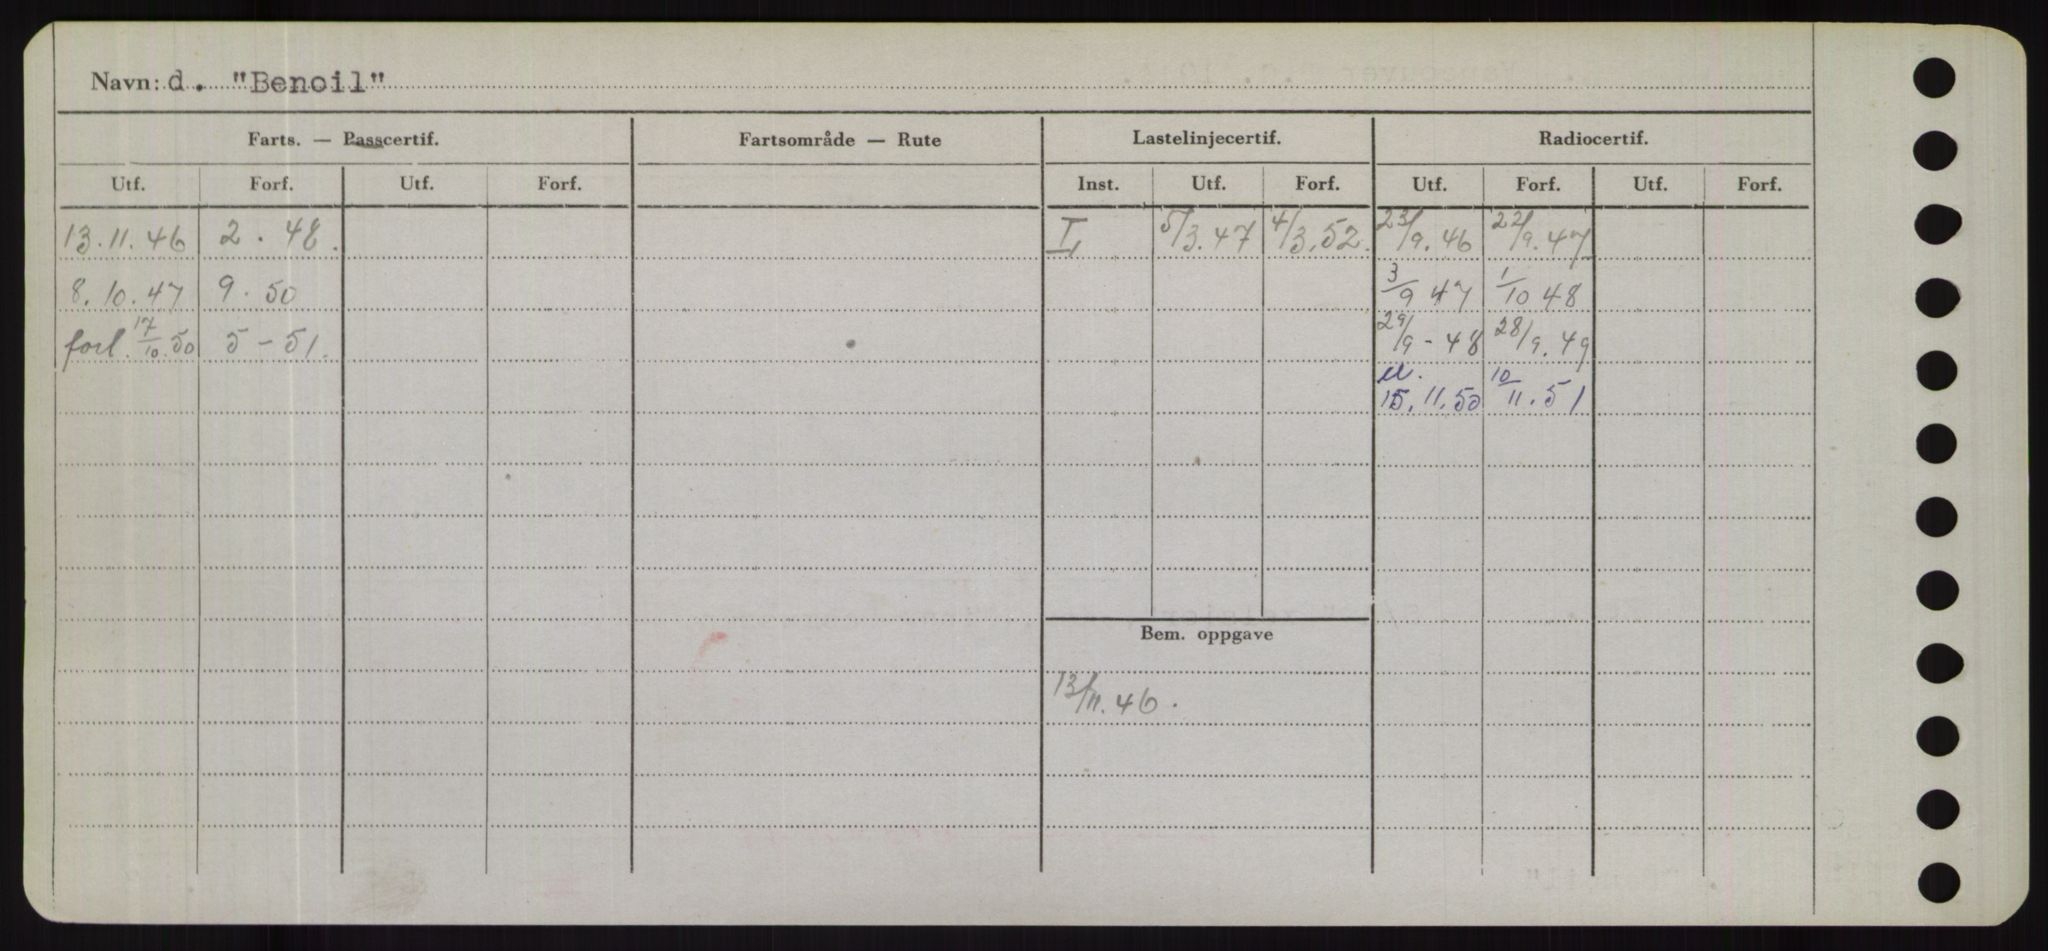 Navn: d. "Benoil"
Farts. — Passcertif. Fartsområde — Rute Lastelinjecertif. Radiocertif.
Utf. Forf. Utf. Forf. Inst. Utf. Forf. Utf. Forf. Utf. Forf.
13.11.46 2.48. I 5/3.47 4/3.52. 23/9.46 22/9.47
8.10.47 9.50 3/9 47 1/10 48
forl. 17/10.50 5-51. 29/9-48 28/9.49
u. 15.11.50 10/11.51
Bem. oppgave
13/11.46.